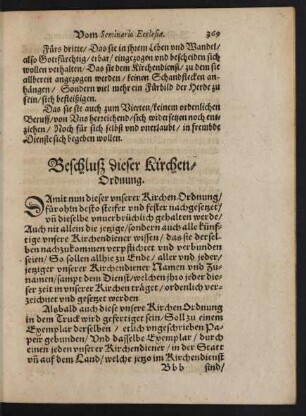 Vom Seminario Ecclesiæ. 369
Fürs dritte / Das sie in jhrem Leben und Wandel /
also Gottfürchtig / erbar / eingezogen und bescheiden sich
wollen verhalten / Das sie dem Kirchendienst / zu dem sie
allbereit angezogen werden / keinen Schandflecken an-
hängen / Sondern viel mehr ein Fürbild der Herde zu
sein / sich befleißigen.
Das sie sie auch zum Vierten / keinem ordenlichen
Beruff / von Uns herreichend / sich widersetzen noch ent-
ziehen / Noch für sich selbst und unerlaubt / in frembde
Dienste sich begeben wollen.
Beschluß dieser Kirchen-
Ordnung.
Damit nun dieser unserer Kirchen Ordnung /
für ohn desto steiffer und fester nachgesetzet /
vñ dieselbe unverbrüchlich gehalten werde /
Auch nit allein die jenige / sondern auch alle künff-
tige unsere Kirchendiener wissen / das sie dersel-
ben nachzukommen verpflichtet und verbunden
seien / So sollen allhie zu Ende / aller und jeder /
jetziger unserer Kirchendiener Namen und Zu-
namen / sampt dem Dienst / welchen jhro jeder die-
ser zeit in unserer Kirchen träget / ordenlich ver-
zeichnet und gesetzet werden
Alsbald auch diese unsere Kirchen Ordnung
in dem Truck wird gefertiget sein / Soll zu einem
Exemplar derselben / etlich ungeschrieben Pa-
peir gebunden / Und dasselbe Exemplar / durch
einen jeden unserer Kirchendiener / in der Statt
vñ auf dem Land / welche jetzo im Kirchendienst
Bbb sind /